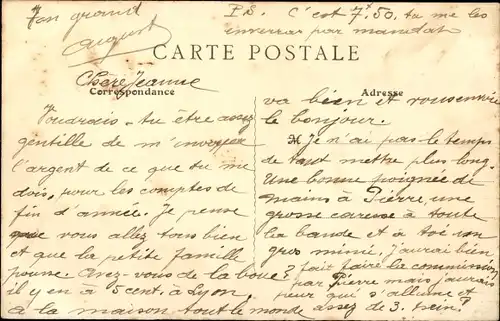 Ton grand
August
P.S. C'est 7f50, tu me les
enverras par mandat
CARTE POSTALE
Chère Jeanne
Correspondance
Adresse
Voudrais-tu être assez
gentille de m'envoyer
l'argent de ce que tu me
dois, pour les comptes de
fin d'année. Je pense
que vous allez tous bien
et que la petite famille
pousse. Avez-vous de la boue?
il y en à 5 cent à Lyon,
à la maison tout le monde
va bien et vous envoie
le bonjour.
Je n'ai pas le temps
de tout mettre plus long.
Une bonne poignée de
mains à Pierre une
grosse caresse à toute
la bande et à toi un
gros mimi, j'aurai bien
fait faire la commission
par Pierre mais j'aurais
peur qu'il s'allume et
assez de 3. hein?